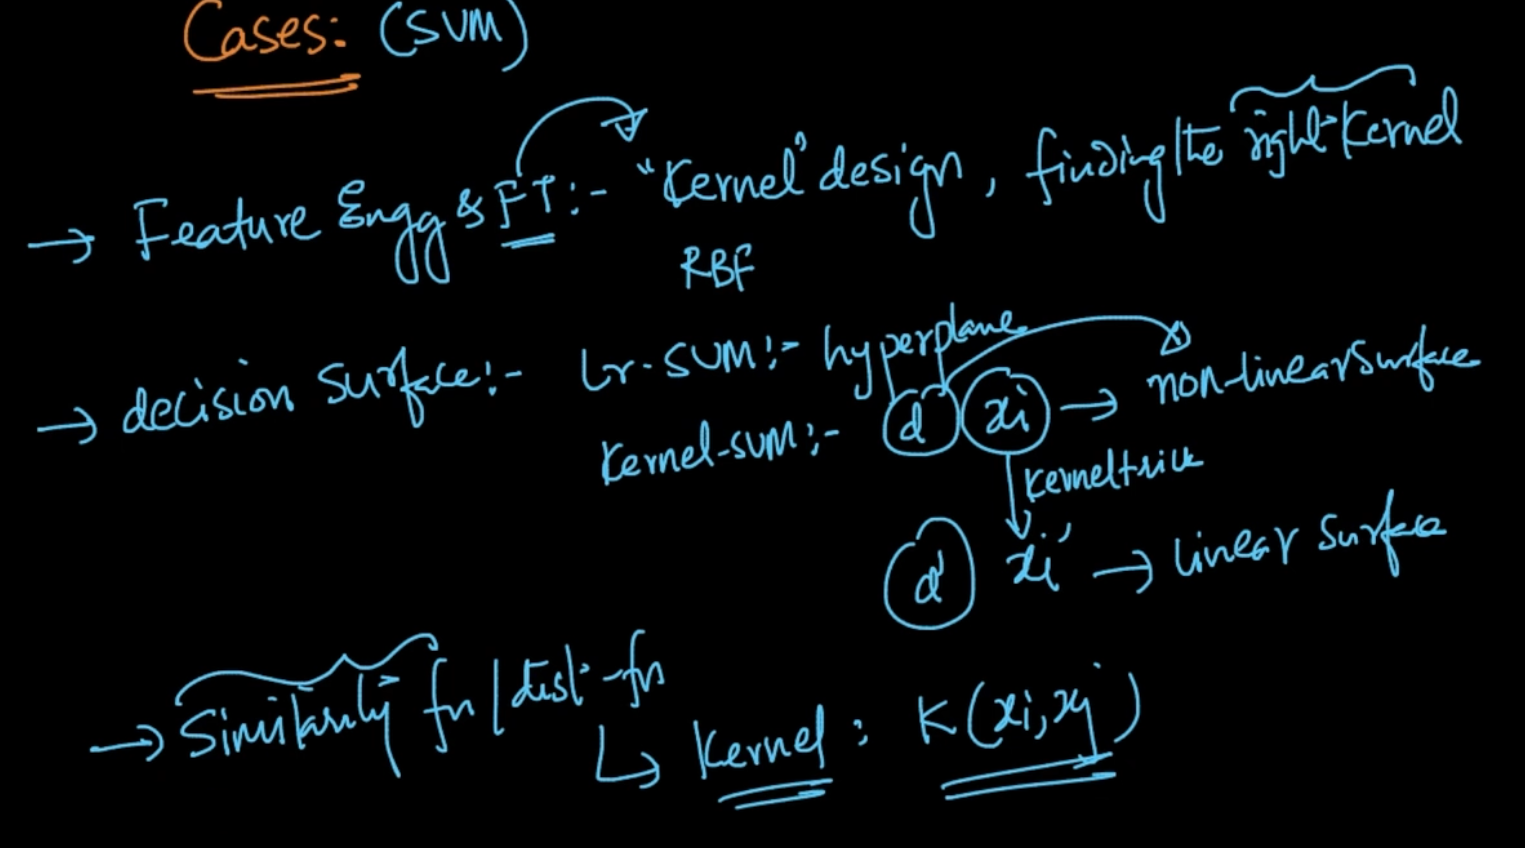 Cases: (SVM)
→ Feature Engg & FT:- "Kernel" design, finding the right Kernel
RBF
→ decision surface:- lr-SVM:- hyperplane
Kernel-SVM:- d xi → non-linear surface
Kernel trick
d' xi' → linear surface
→ Similarity fn / dist-fn
↳ Kernel: K(xi, xj)